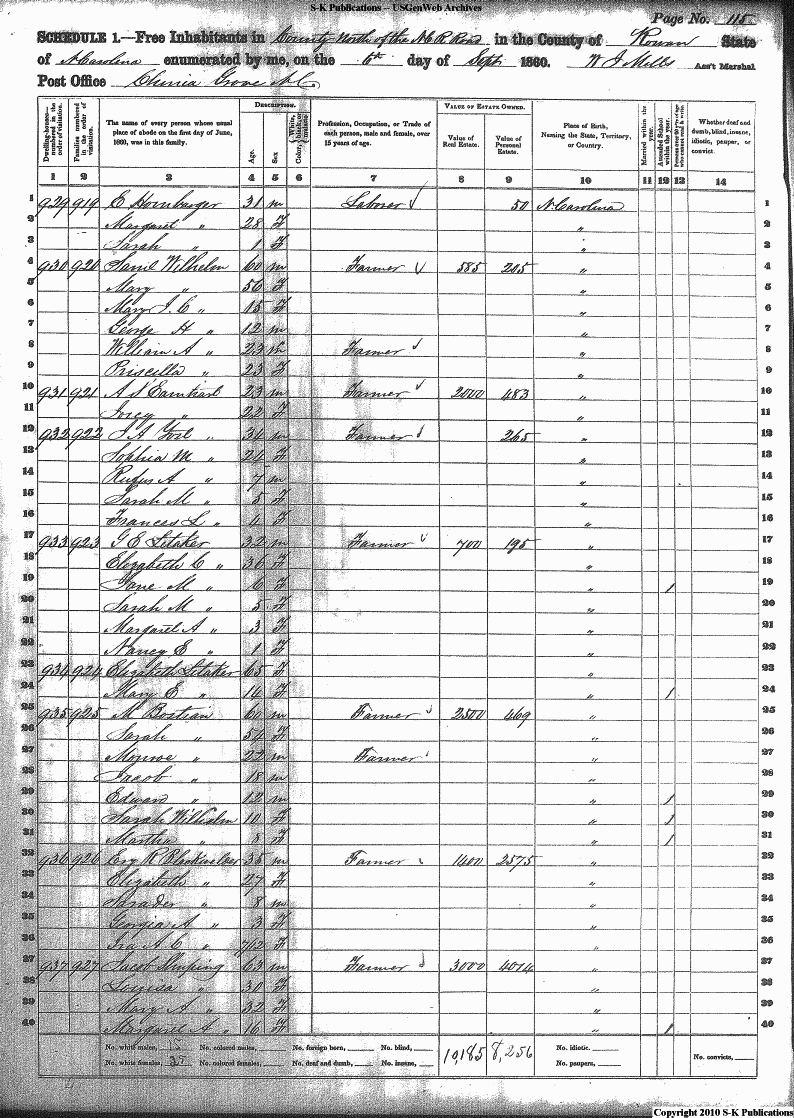 S-K Publications -- USGenWeb Archives
Page No. 115
SCHEDULE 1.—Free Inhabitants in County North of the N C R Road in the County of Rowan State
of N Carolina enumerated by me, on the 6th day of Sept 1860. W J Mills Ass't Marshal
Post Office China Grove N.C.
Dwelling-houses— numbered in the order of visitation.
Families numbered in the order of visitation.
The name of every person whose usual place of abode on the first day of June, 1860, was in this family.
DESCRIPTION.
Age.
Sex
Color
Profession, Occupation, or Trade of each person, male and female, over 15 years of age.
VALUE OF ESTATE OWNED.
Value of Real Estate.
Value of Personal Estate.
Place of Birth, Naming the State, Territory, or Country.
Married within the year.
Attended School within the year.
Whether deaf and dumb, blind, insane, idiotic, pauper, or convict.
1 2 3 4 5 6 7 8 9 10 11 12 13 14
1 929 919 E Hornbarger 31 m Laborer 50 N Carolina 1
2 Margaret " 28 F " 2
3 Sarah " 1 F " 3
4 930 920 Saml Wilhelm 60 m Farmer 585 205 " 4
5 Mary " 56 F " 5
6 Mary J C " 15 F " 6
7 George H " 12 m " 7
8 William A " 23 m Farmer " 8
9 Priscilla " 23 F " 9
10 931 921 A S Earnhart 23 m Farmer 2000 483 " 10
11 " 22 F " 11
12 932 922 " 34 m Farmer 265 " 12
13 Sophia M " 24 F " 13
14 Rufus A " 7 m " 14
15 Sarah M " 5 F " 15
16 Frances L " 4 F " 16
17 933 923 G E Litaker 32 m Farmer 700 195 " 17
18 Elizabeth C " 36 F " 18
19 Jane M " 6 F " 1 19
20 Sarah M " 5 F " 20
21 Margaret A " 3 F " 21
22 Nancy E " 1 F " 22
23 934 924 Elizabeth Litaker 65 F " 23
24 Mary E " 14 F " 1 24
25 935 925 M Bostian 60 m Farmer 2500 469 " 25
26 Sarah " 54 F " 26
27 Monroe " 22 m Farmer " 27
28 Jacob " 18 m " 28
29 Edward " 12 m " 1 29
30 Sarah Wilhelm 10 F " 1 30
31 Martha " 8 F " 1 31
32 936 926 R Blackwelder 35 m Farmer 1400 2575 " 32
33 Elizabeth " 27 F " 33
34 " 8 m " 34
35 Georgia A " 3 F " 35
36 Ira A C " 7/12 F " 36
37 937 927 Jacob 63 m Farmer 3000 4014 " 37
38 Louisa " 30 F " 38
39 Mary A " 32 F " 39
40 Margaret A " 16 F " 1 40
No. white males, No. colored males, No. foreign born, No. blind, 10,185 8,256 No. idiotic.
No. white females, 25 No. colored females, No. deaf and dumb, No. insane, No. paupers, No. convicts,
Copyright 2010 S-K Publications